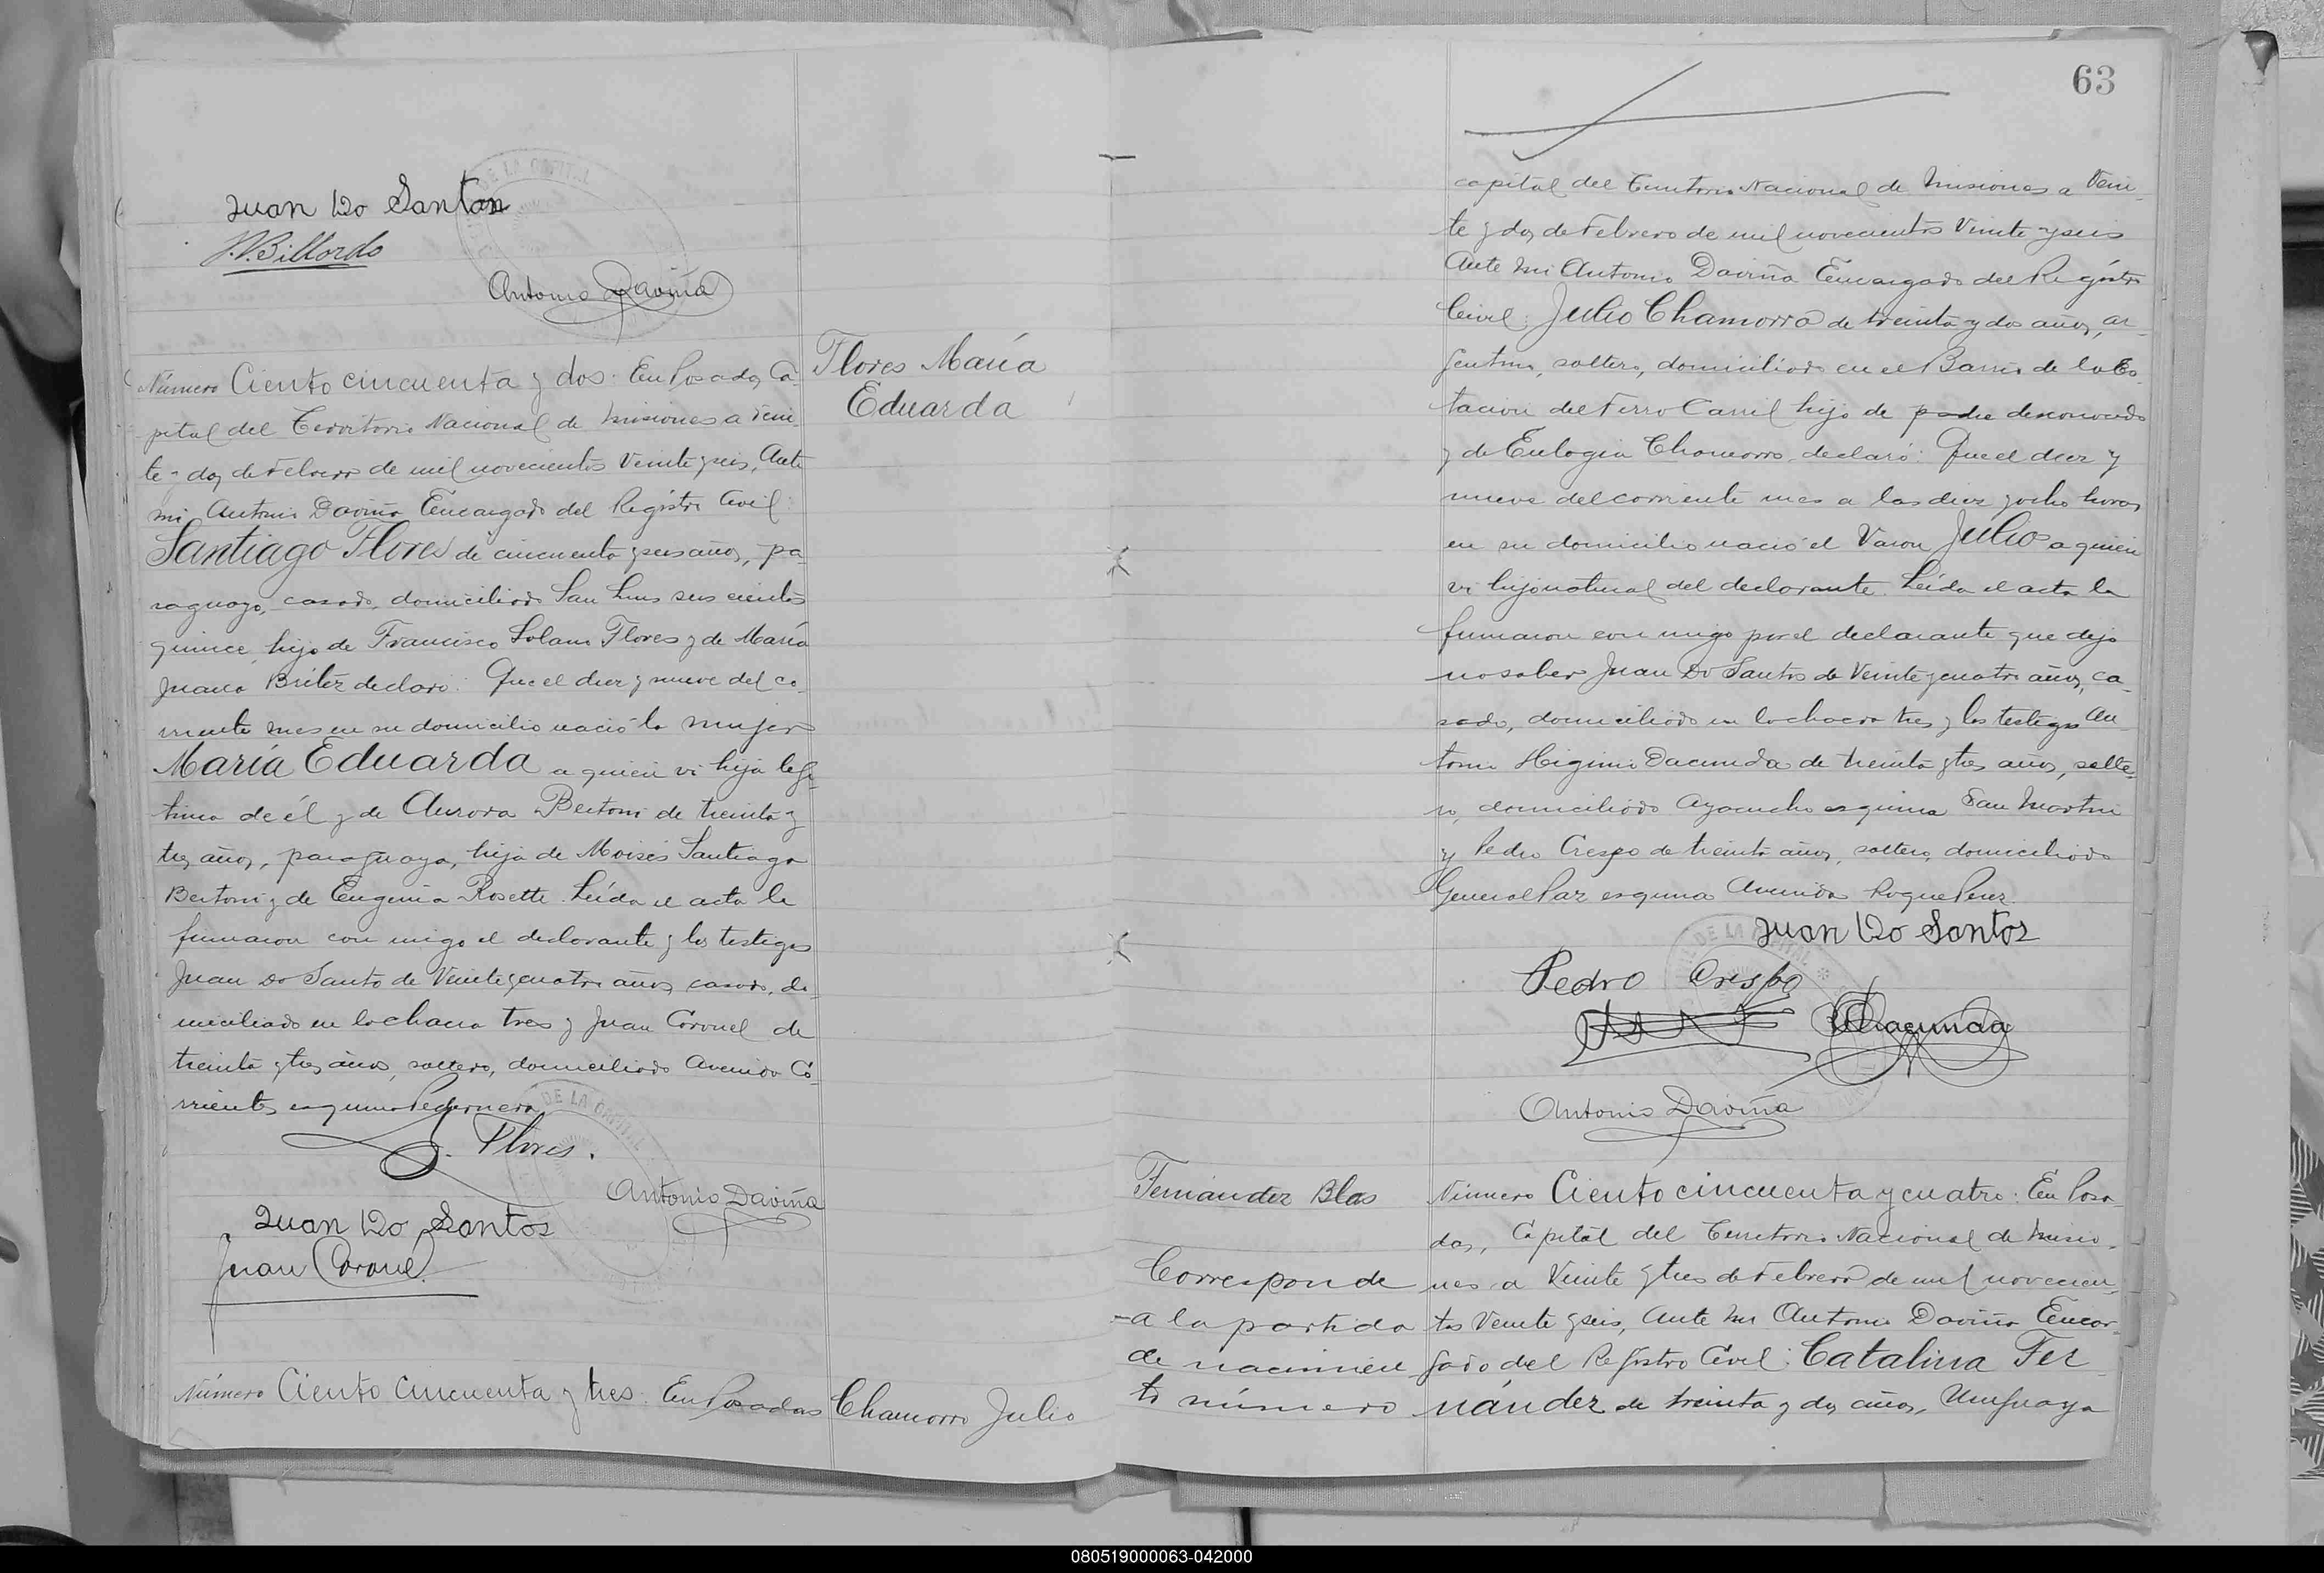 Juan Do Santos
J. V. Billordo
Antonio Daviña
Número Ciento cincuenta y dos. En Posadas, Ca-
pital del Territorio Nacional de Misiones a vein-
te y dos de Febrero de mil novecientos veinte y seis, Ante
mi Antonio Daviña Encargado del Registro Civil:
Santiago Flores de cincuenta y seis años, pa-
raguayo, casado, domiciliado San Luis seis cientos
quince, hijo de Francisco Solano Flores y de María
Juana Britez declaró: Que el diez y nueve del co-
rriente mes en su domicilio nació la mujer
María Eduarda a quien vi hija legí-
tima de él y de Aurora Bertoni de treinta y
tres años, paraguaya, hija de Moisés Santiago
Bertoni y de Eugenia Rosette. Leída el acta la
firmaron con migo el declarante y los testigos
Juan Do Santo de Veinte y cuatro años, casado, do-
miciliado en la chacra tres y Juan Coronel de
treinta y tres años, soltero, domiciliado Avenida Co-
rrientes esquina Pedernera
S. Flores.
Antonio Daviña
Juan Do Santos
Juan Coronel
Número Ciento cincuenta y tres. En Posadas
Flores María
Eduarda
Chamorro Julio
63
capital del Territorio Nacional de Misiones a Vein-
te y dos de Febrero de mil novecientos Veinte y seis
Ante mi Antonio Daviña Encargado del Registro
Civil: Julio Chamorro de treinta y dos años, ar-
gentino, soltero, domiciliado en el Barrio de la Es-
tacion del Ferro Carril hijo de padre desconocido
y de Eulogia Chamorro, declaró: Que el diez y
nueve del corriente mes a las diez y ocho horas
en su domicilio nació el Varon Julio a quien
vi hijo natural del declarante. Leída el acta la
firmaron con migo por el declarante que dijo
no saber Juan Do Santos de Veinte y cuatro años, ca-
sado, domiciliado en la chacra tres y los testigos An-
tonio Higinio Dacunda de treinta y tres años, solte-
ro, domiciliado Ayacucho esquina San Martin
y Pedro Crespo de treinta años, soltero, domiciliado
General Paz esquina Avenida Roque Perez.
Juan Do Santos
Pedro Crespo
Dacunda
Antonio Daviña
Fernández Blas
Corresponde
a la partida
de nacimien
to número
Número Ciento cincuenta y cuatro: En Posa-
das, Capital del Territorio Nacional de Misio-
nes a Veinte y tres de Febrero de mil novecien-
tos Veinte y seis, Ante mi Antonio Daviña Encar-
gado del Registro Civil: Catalina Fer-
nández de treinta y dos años, Uruguaya
080519000063-042000